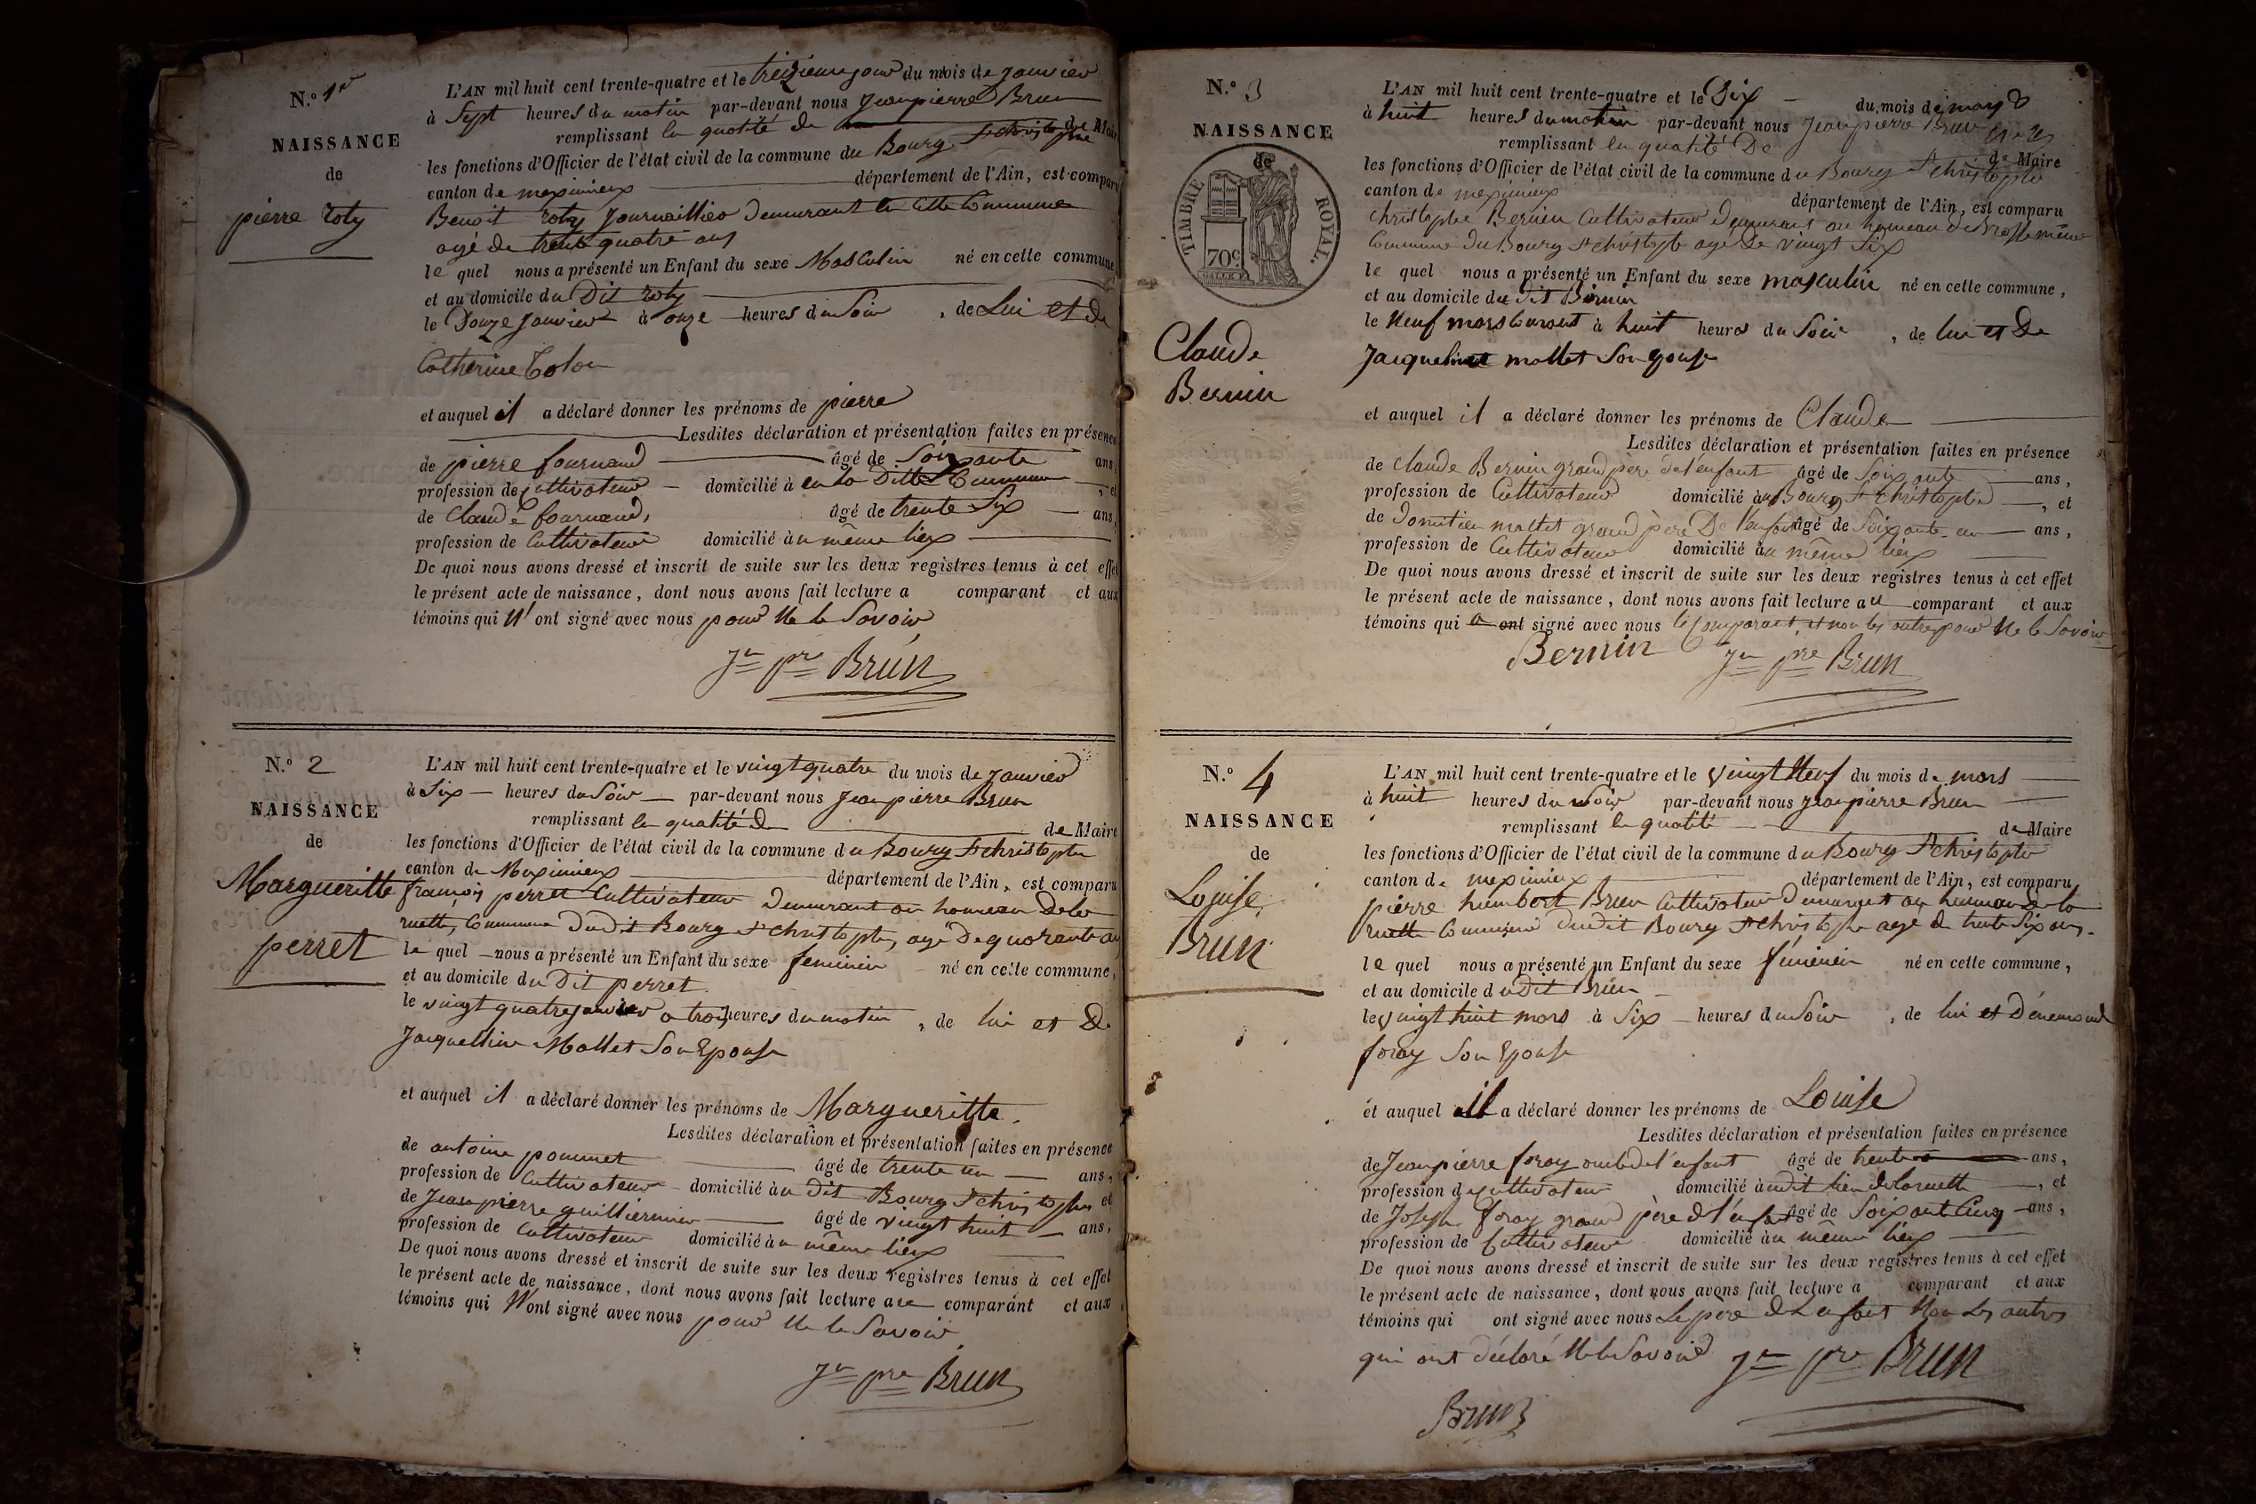 N.º 1er
NAISSANCE
de
pierre roty
L'AN mil huit cent trente-quatre et le treizieme jour du mois de janvier
à Sept heures du matin par-devant nous jean pierre Brun
remplissant en qualité de de Maire
les fonctions d'Officier de l'état civil de la commune du Bourg St christophe
canton de meximieux département de l'Ain, est comparu
Benoit roty journallier demeurant en cette Commune
agé de trente quatre ans
le quel nous a présenté un Enfant du sexe Masculin né en cette commune,
et au domicile du Dit roty
le Douze janvier à onze heures du Soir, de Lui et de
Catherine
et auquel il a déclaré donner les prénoms de pierre
Lesdites déclaration et présentation faites en présence
de pierre fournand âgé de Soixante ans,
profession de Cultivateur domicilié à en la Ditte Commune, et
de Claude fournand, âgé de trente Six ans,
profession de Cultivateur domicilié au même lieux
De quoi nous avons dressé et inscrit de suite sur les deux registres tenus à cet effet
le présent acte de naissance, dont nous avons fait lecture a comparant et aux
témoins qui n' ont signé avec nous pour Ne le Savoir
Jn pre BRUN
N.º 2
NAISSANCE
de
Margueritte
perret
L'AN mil huit cent trente-quatre et le vingt quatre du mois de janvier
à Six heures du Soir par-devant nous jean pierre Brun
remplissant en qualité de de Maire
les fonctions d'Officier de l'état civil de la commune du Bourg St christophe
canton de Meximieux département de l'Ain, est comparu
françois perret Cultivateur demeurant au hameau de la
ruette, Commune Dudit Bourg St christophe, agé De quarante ans
le quel nous a présenté un Enfant du sexe feminin né en cette commune,
et au domicile du Dit perret
le vingt quatre janvier a trois heures du matin, de lui et De
Jacqueline Mollet Son Epouse
et auquel il a déclaré donner les prénoms de Margueritte.
Lesdites déclaration et présentation faites en présence
de antoine pommet âgé de trente un ans,
profession de Cultivateur domicilié au dit Bourg St christophe et
de Jean pierre guilliermin âgé de vingt huit ans,
profession de Cultivateur domicilié au même lieux
De quoi nous avons dressé et inscrit de suite sur les deux registres tenus à cet effet
le présent acte de naissance, dont nous avons fait lecture au comparant et aux
témoins qui N'ont signé avec nous pour Ne le Savoir
Jn pre BRUN
N.º 3
NAISSANCE
de
TIMBRE ROYAL.
70c.
Claude
Bernin
L'AN mil huit cent trente-quatre et le Dix du mois de mars
à huit heures du matin par-devant nous Jean pierre Brun
remplissant en qualité De de Maire
les fonctions d'Officier de l'état civil de la commune du Bourg St christophe
canton de meximieux département de l'Ain, est comparu
christophe Bernin Cultivateur demeurant au hameau de même
Commune du Bourg St christophe agé De vingt Six
le quel nous a présenté un Enfant du sexe masculin né en cette commune,
et au domicile du dit Bernin
le Neuf mars Courant à huit heures du Soir, de lui et De
Jacqueline mollet Son Epouse
et auquel il a déclaré donner les prénoms de Claude
Lesdites déclaration et présentation faites en présence
de Claude Bernin grand père de l'enfant âgé de Soixante ans,
profession de Cultivateur domicilié au Bourg St christophe, et
de Donutien mollet grand père De l'enfant âgé de Soixante un ans,
profession de Cultivateur domicilié au même lieux
De quoi nous avons dressé et inscrit de suite sur les deux registres tenus à cet effet
le présent acte de naissance, dont nous avons fait lecture au comparant et aux
témoins qui a ont signé avec nous le Comparant, et non les autres pour Ne le Savoir
Bernin Jn pre BRUN
N.º 4
NAISSANCE
de
Louise
Brun
L'AN mil huit cent trente-quatre et le vingt Neuf du mois de mars
à huit heures du Soir par-devant nous jean pierre Brun
remplissant en qualité de Maire
les fonctions d'Officier de l'état civil de la commune du Bourg St christophe
canton de meximieux département de l'Ain, est comparu
pierre humbert Brun Cultivateur Demeurant au hameau de la
ruette Commune dudit Bourg St christophe agé de trente Six ans
le quel nous a présenté un Enfant du sexe féminin né en cette commune,
et au domicile du dit Brun
le vingt huit mars à Six heures du Soir, de lui et
foray Son Epouse
et auquel il a déclaré donner les prénoms de Louise
Lesdites déclaration et présentation faites en présence
de Jean pierre foray oncle de l'enfant âgé de trente ans,
profession de Cultivateur domicilié au dit lieu de la ruette, et
de Joseph foray grand père de l'enfant âgé de Soixante Cinq ans,
profession de Cultivateur domicilié au même lieux
De quoi nous avons dressé et inscrit de suite sur les deux registres tenus à cet effet
le présent acte de naissance, dont nous avons fait lecture a comparant et aux
témoins qui ont signé avec nous Le père de L'enfant Non Les autres
qui ont déclaré Ne le Savoir Jn pre BRUN
BRUN